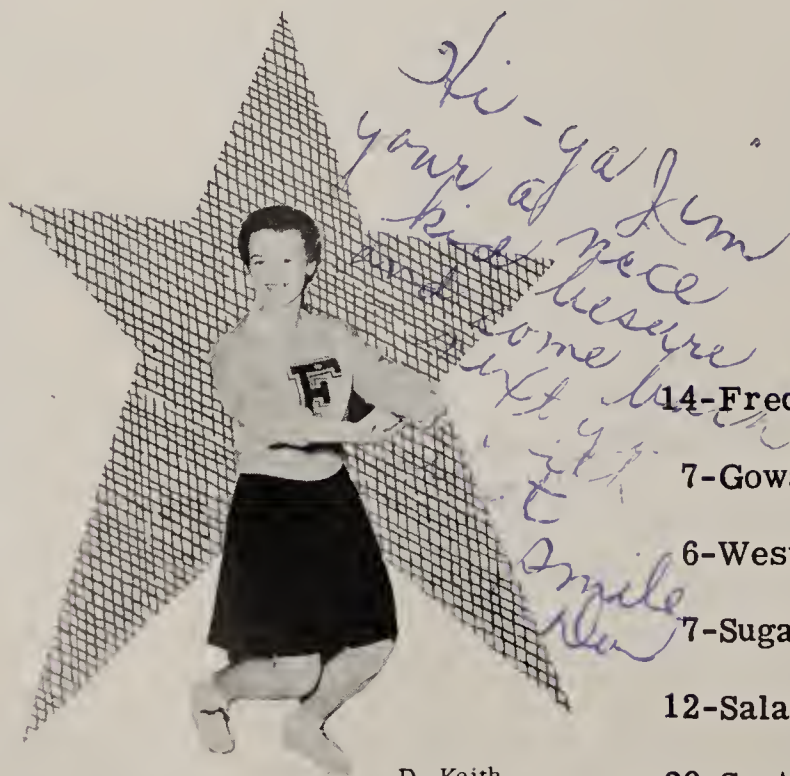 Hi-ya Jim
your a nice
kid
and besure
come back
next yr
smile
F
14-Fred
7-Gow
6-West
7-Suga
12-Sala
D. Keith